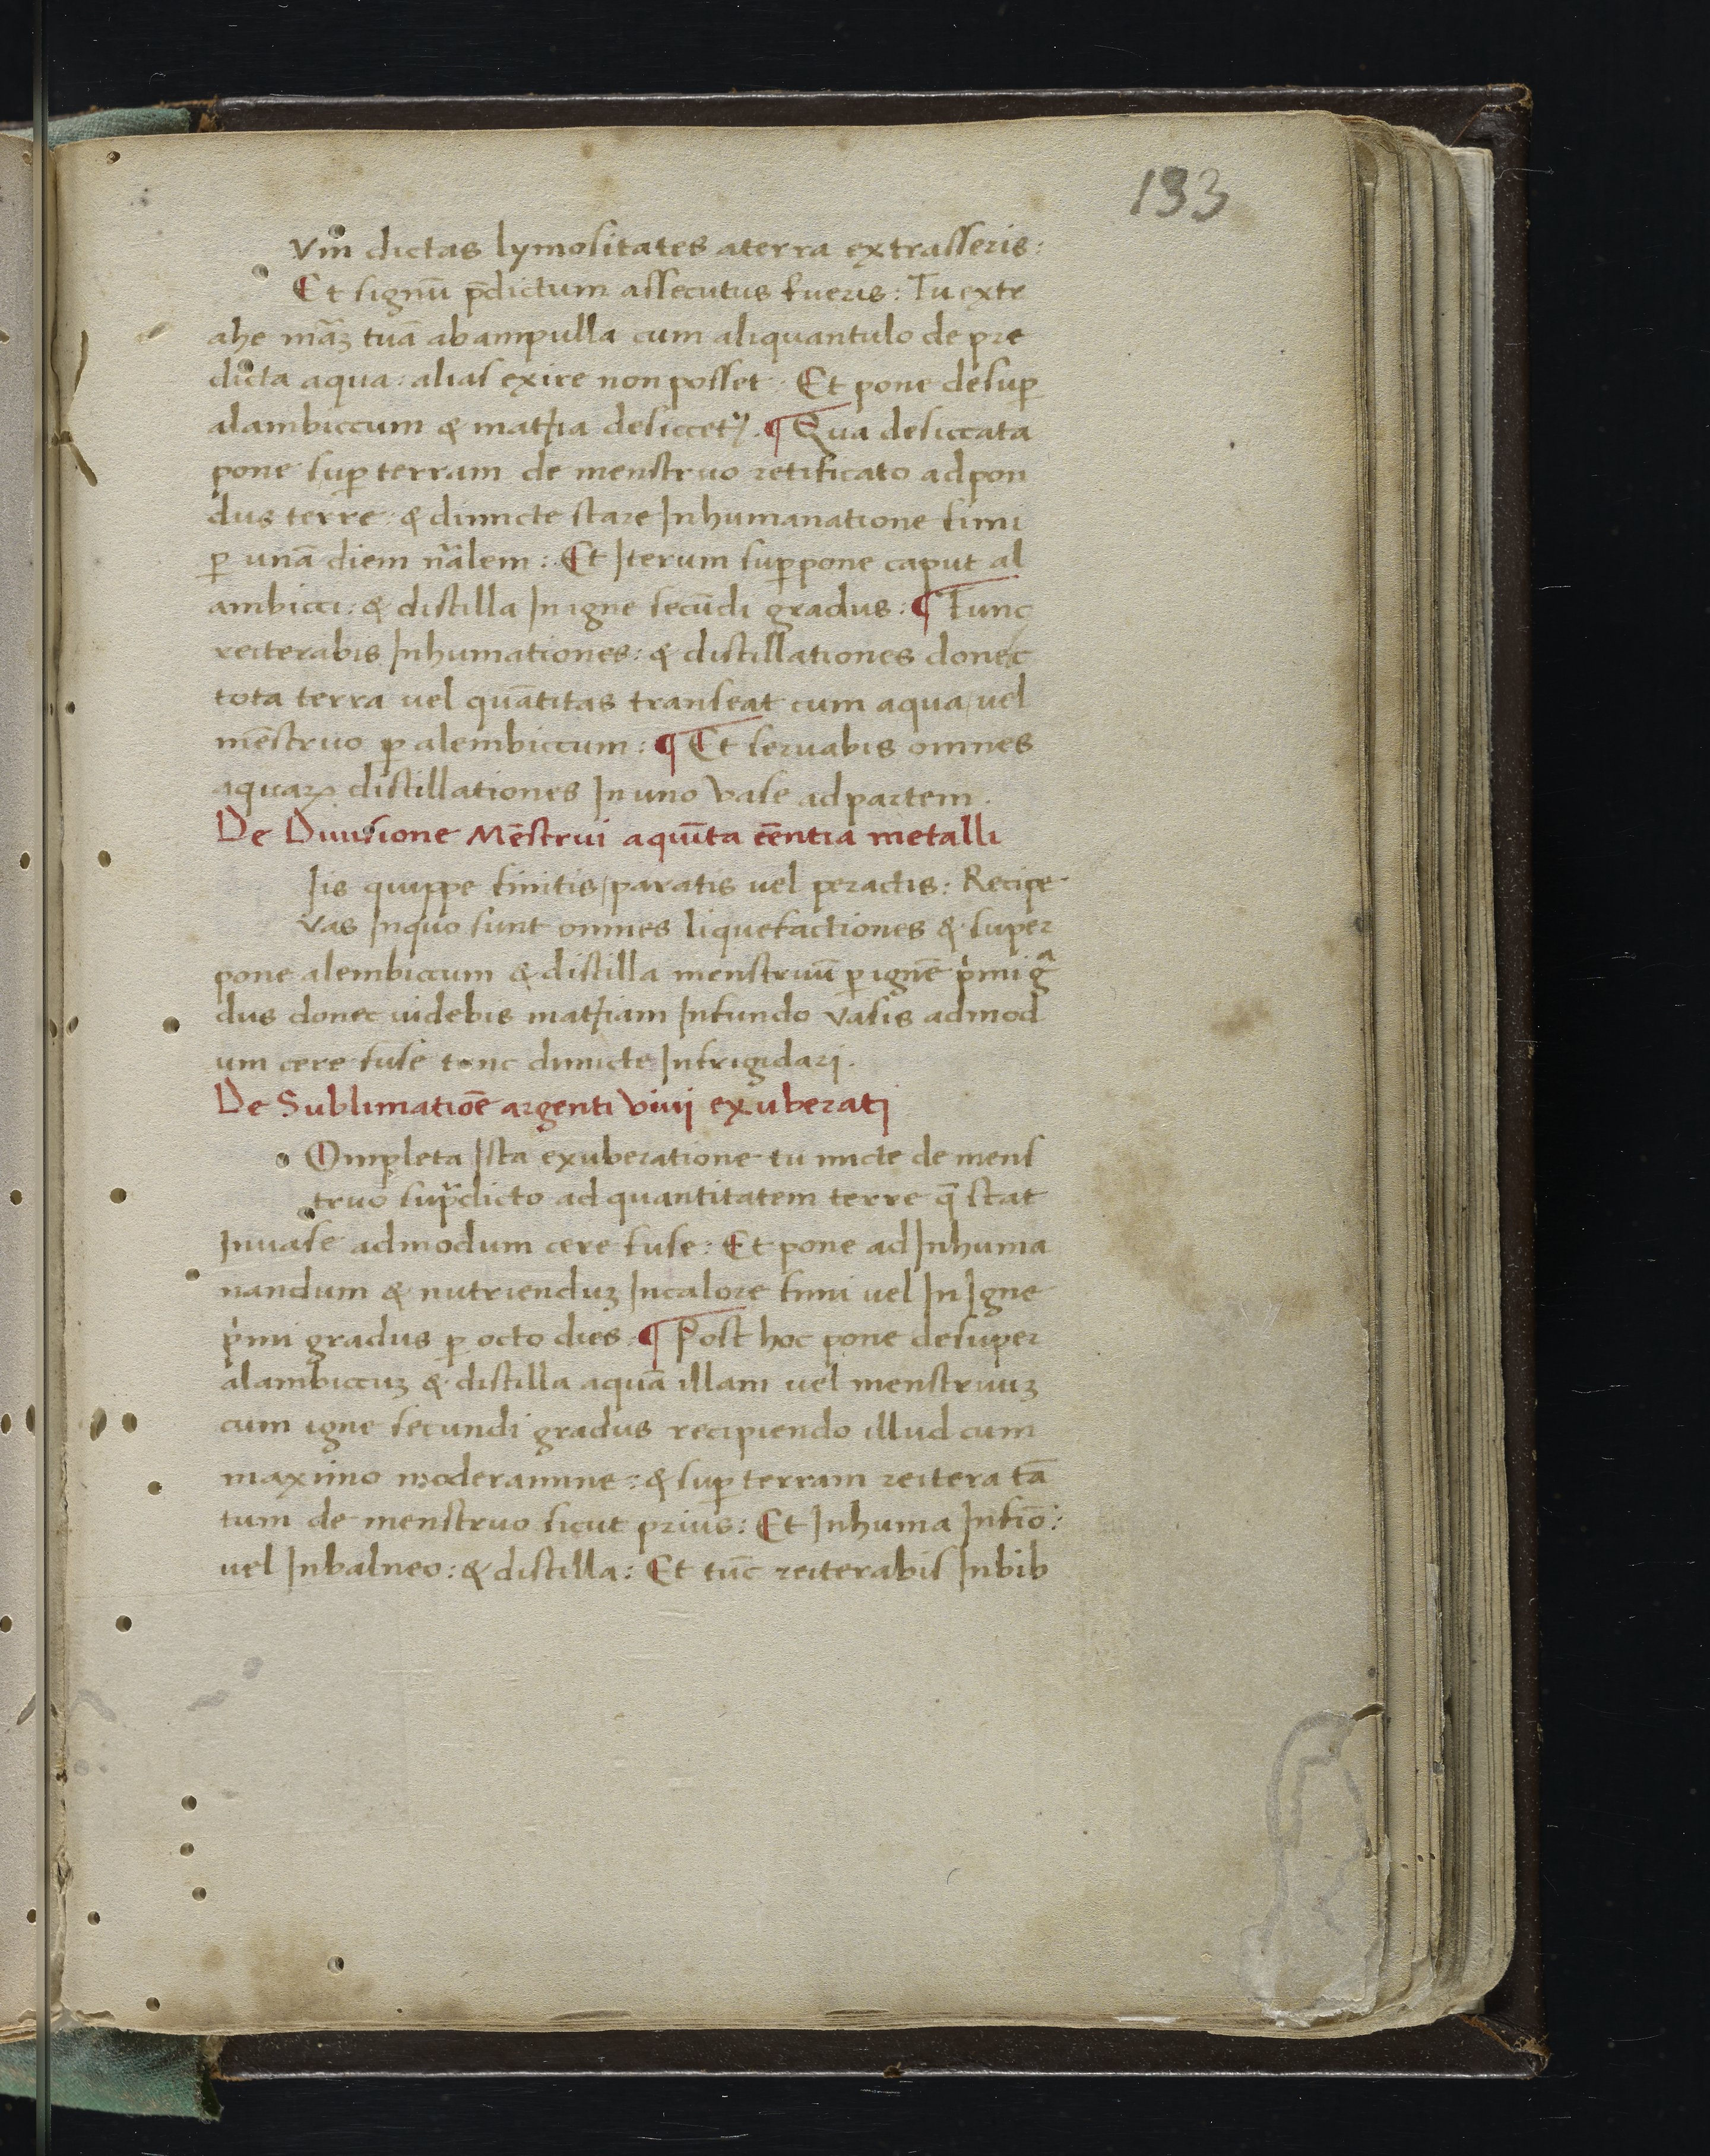 133
vm dictas lymositates aterra extrasseris:
Et signū p̄dictum assecutus fueris: Tu exte
ahe māz tuā ab ampulla cum aliquantulo de pre
dicta aqua: alias exire non posset. Et pone desuꝑ
alambiccum & matꝭia desiccetꝭ. ¶ Qua desiccata
pone suꝑ terram de menstruo retificato ad pon
dus terre: & dimicte stare Inhumanatione fimi
ꝑ unā diem nālem: Et Iterum suꝑpone caput al
ambicci: & distilla In igne secūdi gradus: ¶ Tunc
reiterabis Inhumationes: & distillationes donec
tota terra vel quātitas transeat cum aqua, vel
mēstruo ꝑ alembiccum: ¶ Et servabis omnes
aquaꝝ distillationes In uno vase ad partem.
De Divisione Mēstrui aquīta eēntia metalli
Iis quippe finitis/paratis vel peractis: Recipe
vas Inquo sunt omnes liquefactiones & super
pone alembiccum & distilla menstruū ꝑ ignē pͥmi gͣ
dus donec videbis matꝭiam Infundo vasis admod
um cere fuse tunc dimicte Infrigidari.
De Sublimatiōe argenti vivi exuberati
Ompleta Ista exuberatione tu micte de mens
truo supᷓdicto ad quantitatem terre q̄ stat
Invase admodum cere fuse: Et pone ad Inhuma
nandum & nutrienduz Incalore fimi vel In Igne
pͥmi gradus ꝑ octo dies. ¶ Post hoc pone desuper
alambiccuz & distilla aquā illam vel menstruuz
cum igne secundi gradus recipiendo illud cum
maximo moderamine: & suꝑ terram reitera tā
tum de menstruo sicut prius: Et Inhuma Infio:
vel Inbalneo: & distilla: Et tūc reiterabis Inbib